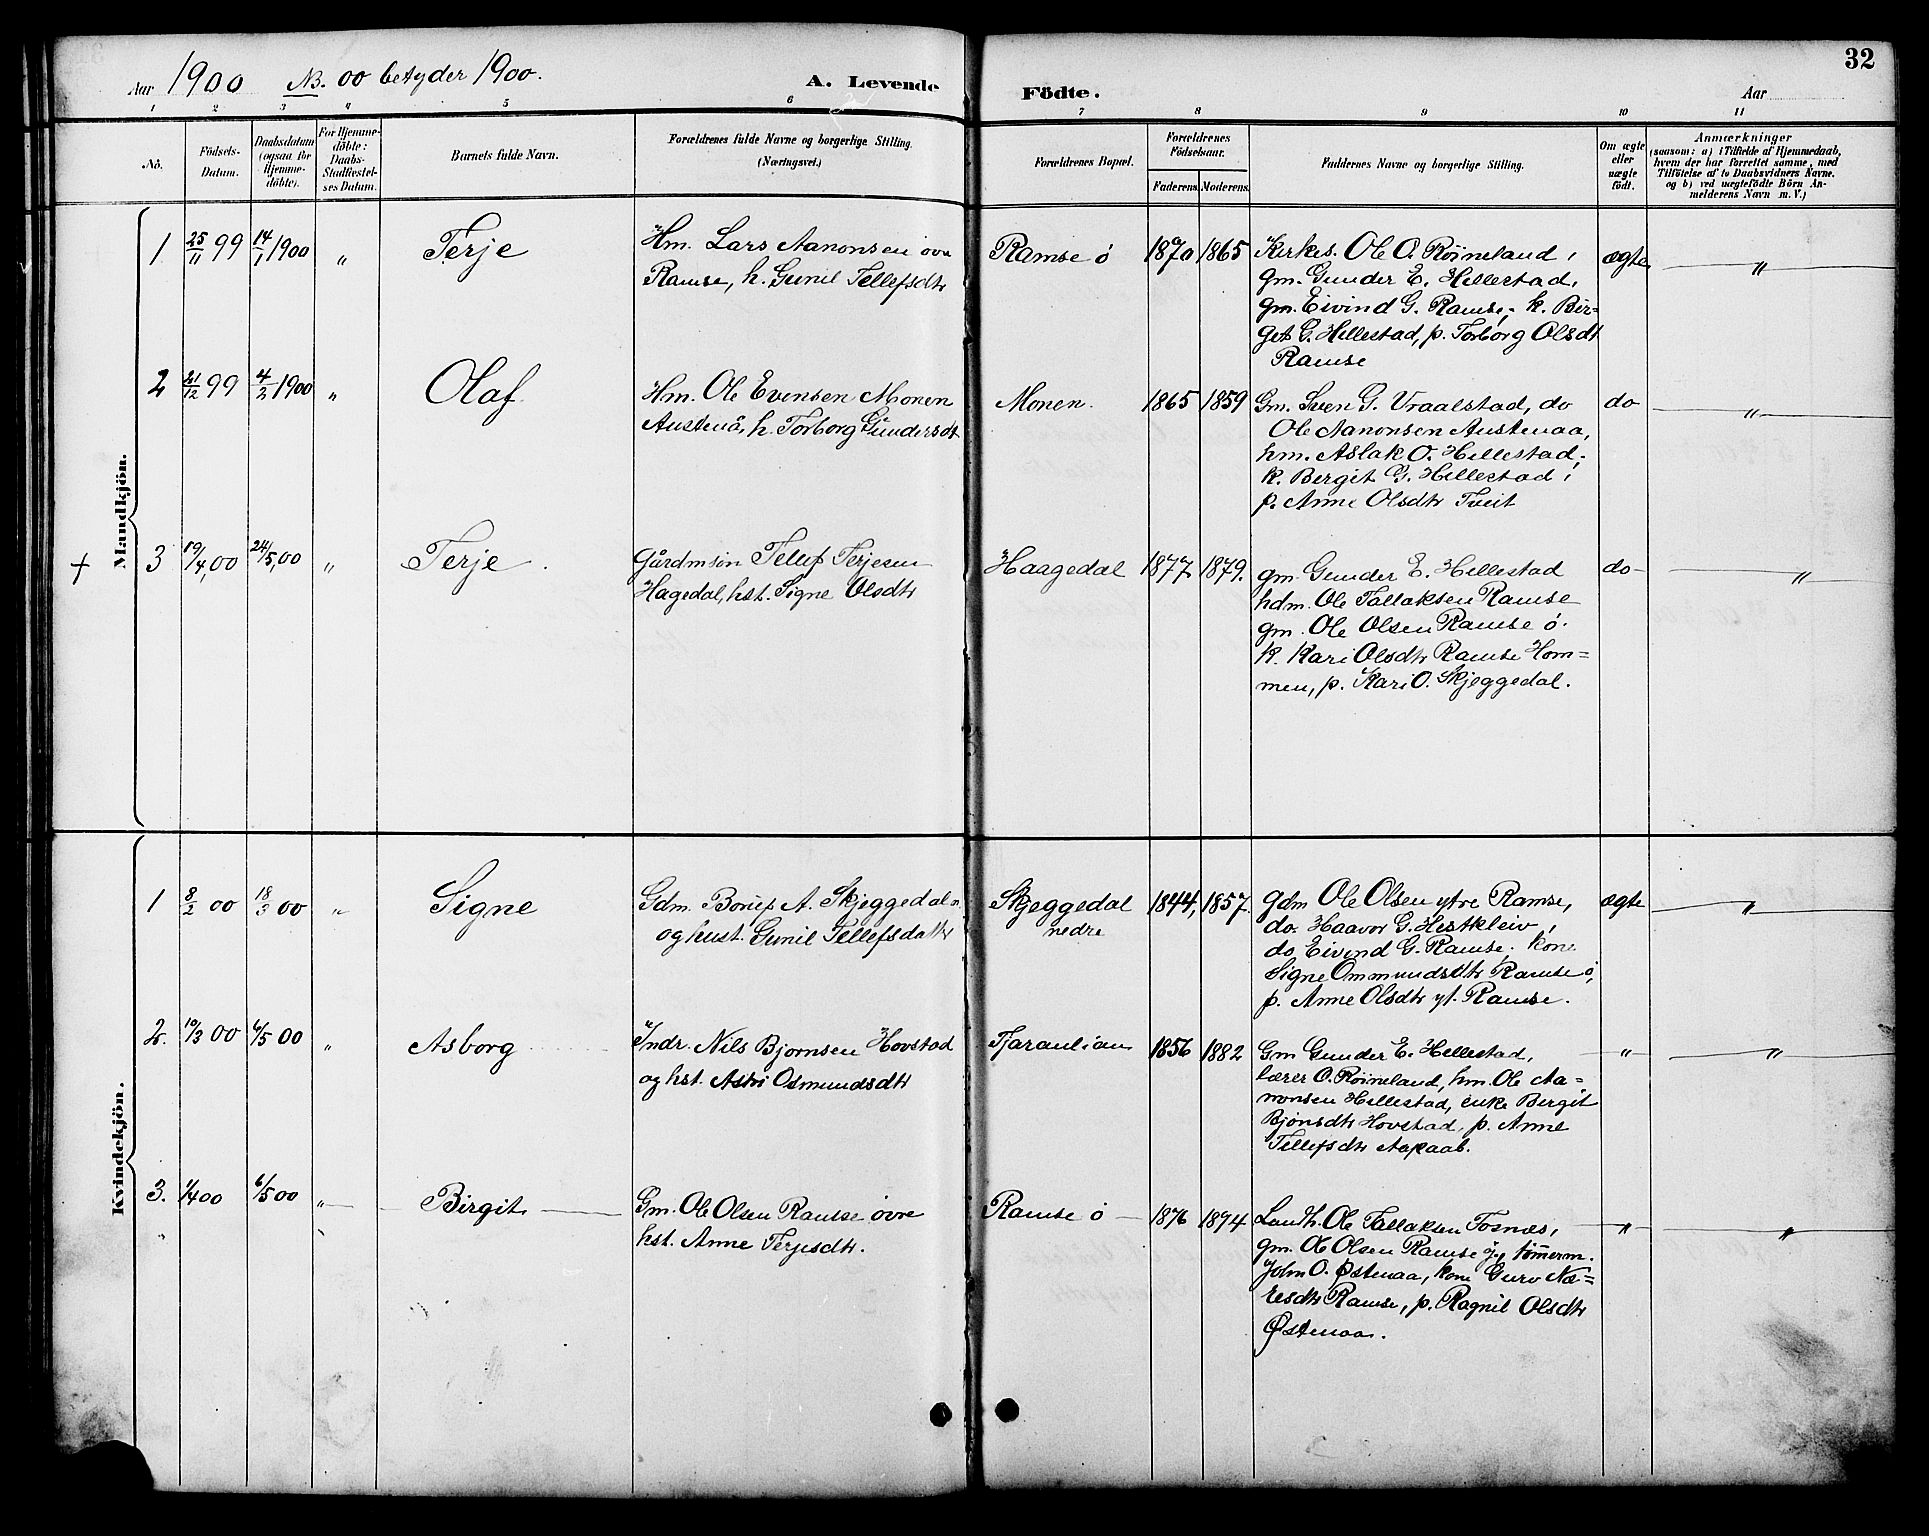 32
Aar 1900 NB. 00 betyder 1900.
A. Levende Födte.
Aar
1 2 3 4 5 6 7 8 9 10 11
No.
Födsels-Datum.
Daabsdatum (ogsaa for Hjemme-döbte).
For Hjemme-döbte: Daabs-Stadfæstel-ses Datum.
Barnets fulde Navn.
Forældrenes fulde Navne og borgerlige Stilling.
(Næringsvei.)
Forældrenes Bopæl.
Forældrenes Födselsaar.
Faderens. Moderens.
Faddernes Navne og borgerlige Stilling.
Om ægte eller uægte födt.
Anmærkninger
(saasom: a) i Tilfælde af Hjemmedaab,
hvem der har forrettet samme, med
Tilföielse af to Daabsvidners Navne.
og b) ved uægtefödte Börn An-
melderens Navn m. V.)
Mandkjön.
1 25/11 99 14/1 1900 " Terje
Hm. Lars Aanonsen övre
Ramse, h. Gunil Tellefsdtr
Ramse ö 1870 1865
Kirkes. Ole O. Röineland,
gm. Gunder E. Hillestad,
gm. Eivind G. Ramse; k. Bir=
get G. Hillestad, p. Torborg Olsdtr
Ramse
ægte "
2 21/12 99 4/2 1900 " Olaf
Hm. Ole Evensen Monen
Austenå, h. Torborg Gundersdtr
Monen. 1865 1859
Gm. Sven G. Vraalstad, do
Ole Aanonsen Austenaa,
hm. Aslak O. Hillestad;
k. Bergit G. Hillestad,
p. Anne Olsdtr Tveit
do "
+ 3 19/4,00 24/5,00 " Terje.
Gårdmsön Tellef Terjesen
Hagedal, hst. Signe Olsdtr
Haagedal 1877 1879.
gm. Gunder E. Hillestad
hdm. Ole Tallaksen Ramse
gm. Ole Olsen Ramse ö.
k. Kari Olsdtr Ramse Hom=
men, p. Kari O. Skjeggedal.
do "
Kvindekjön.
1 8/2 00 18/3 00 " Signe
Gdm. Boruf A. Skjeggedal n.
og hust. Gunil Tellefsdattr
Skjeggedal
nedre
1844, 1857.
gdm Ole Olsen ytre Ramse,
do. Haavor G. Hestkleiv,
do Eivind G. Ramse; kone
Signe Ommundsdtr Ramse ö,
p. Anne Olsdtr yt. Ramse.
ægte "
2. 10/3 00 6/5 00 " Asborg
Indr. Nils Bjornsen Hovstad
og hst. Astri Osmundsdtr
Tjaraulian 1856 1882
Gm Gunder E. Hillestad,
lærer O. Röineland, hm. Ole Aa=
nonsen Hillestad, enke Bergit
Bjönsdtr Hovstad, p. Anne
Tellefsdtr Aapaab.
" "
3. 1/4 00 6/5 00 " Birgit
Gm. Ole Olsen Ramse övre
hst. Anne Terjesdtr.
Ramse ö 1876 1874
Landh. Ole Tallaksen Tosnæs,
gm. Ole Olsen Ramse y., tömmerm.
John O. Østenaa, kone Guro Næ=
lesdtr Ramse, p. Ragnil Olsdtr
Østenaa.
" "